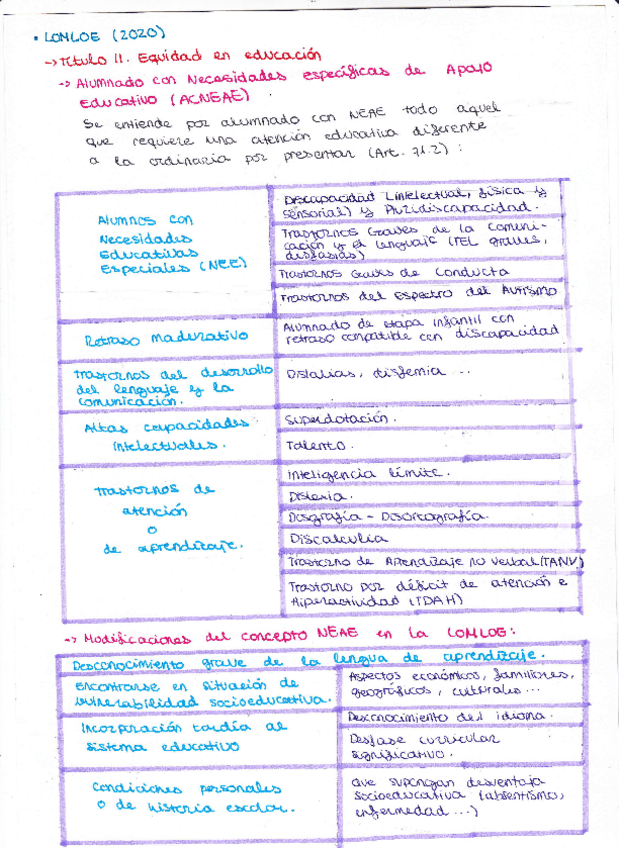 • LOMLOE (2020)
-> Título II. Equidad en educación
-> Alumnado con Necesidades específicas de Apoyo
Educativo (ACNEAE)
Se entiende por alumnado con NEAE todo aquel
que requiere una atención educativa diferente
a la ordinaria por presentar (Art. 71.2) :
Alumnos con
Necesidades
Educativas
Especiales (NEE)
Discapacidad (intelectual, física y
sensorial) y Pluridiscapacidad.
Trastornos Graves de la Comuni-
cación y el lenguaje (TEL graves,
disfasias)
Trastornos Graves de Conducta
Trastornos del Espectro del Autismo
Retraso madurativo
Alumnado de etapa Infantil con
retraso compatible con discapacidad
Trastornos del desarrollo
del lenguaje y la
comunicación.
Dislalias, disfemia ...
Altas capacidades
intelectuales.
Superdotación.
Talento.
Trastornos de
atención
o
de aprendizaje.
Inteligencia límite.
Dislexia.
Disgrafía - Disortografía.
Discalculia
Trastorno de Aprendizaje no Verbal (TANV)
Trastorno por déficit de atención e
Hiperactividad (TDAH)
-> Modificaciones del concepto NEAE en la LOMLOE:
Desconocimiento grave de la lengua de aprendizaje.
Encontrarse en situación de
vulnerabilidad socioeducativa.
Aspectos económicos, familiares,
geográficos, culturales ...
Incorporación tardía al
sistema educativo
Desconocimiento del idioma.
Desfase curricular
significativo.
Condiciones personales
o de historia escolar.
Que supongan desventaja
socioeducativa (absentismo,
enfermedad ...)